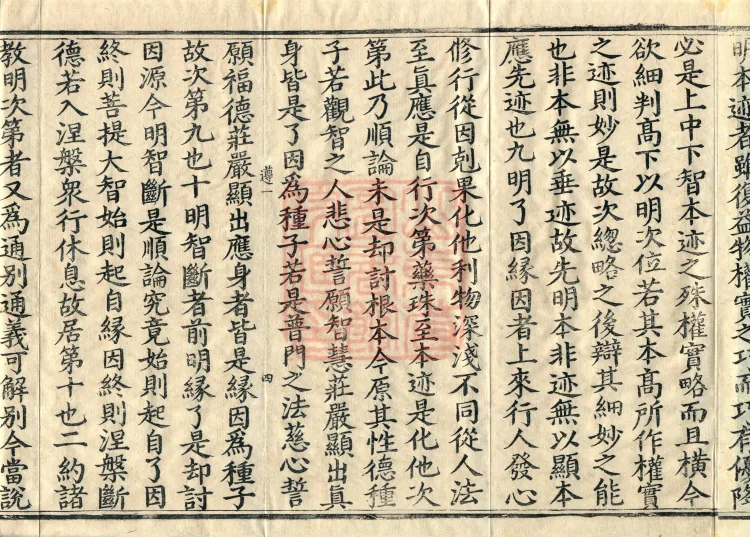 明本迹者雖復益物權實之巧而巧有優降
必是上中下智本迹之殊權實略而且橫今
欲細判髙下以明次位若其本髙所作權實
之迹則妙是故次總略之後辯其細妙之能
也非本無以垂迹故先明本非迹無以顯本
應先迹也九明了因緣因者上來行人發心
修行從因剋果化他利物深淺不同從人法
至真應是自行次第藥珠至本迹是化他次
第此乃順論未是却討根本今原其性德種
子若觀智之人悲心誓願智慧莊嚴顯出真
身皆是了因為種子若是普門之法慈心誓
遵一
四
願福德莊嚴顯出應身者皆是緣因為種子
故次第九也十明智斷者前明緣了是却討
因源今明智斷是順論究竟始則起自了因
終則菩提大智始則起自緣因終則涅槃斷
德若入涅槃衆行休息故居第十也二約諸
教明次第者又為通別通義可解別今當說